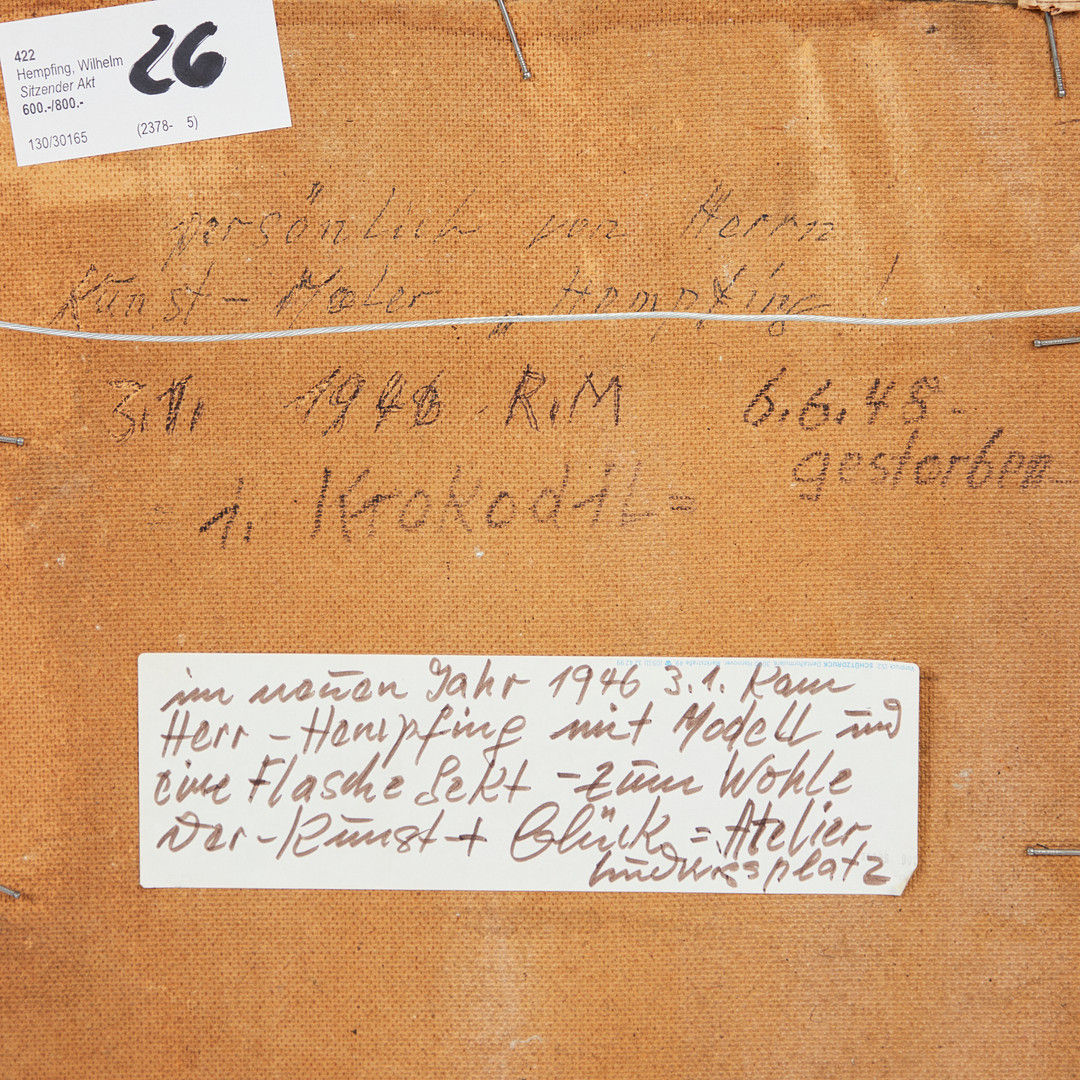 422
Hempfing, Wilhelm
Sitzender Akt
600.-/800.-
130/30165 (2378- 5)
26
persönlich von Herrn
Kunst - Maler „ Hempfing !
3.1. 1946 R.M 6.6.48.
gestorben
1. Krokodil =
im neuen Jahr 1946 3.1. kam
Herr - Hempfing mit Modell und
eine Flasche Sekt - zum Wohle
der - Kunst + Glück = Atelier
Ludwigsplatz